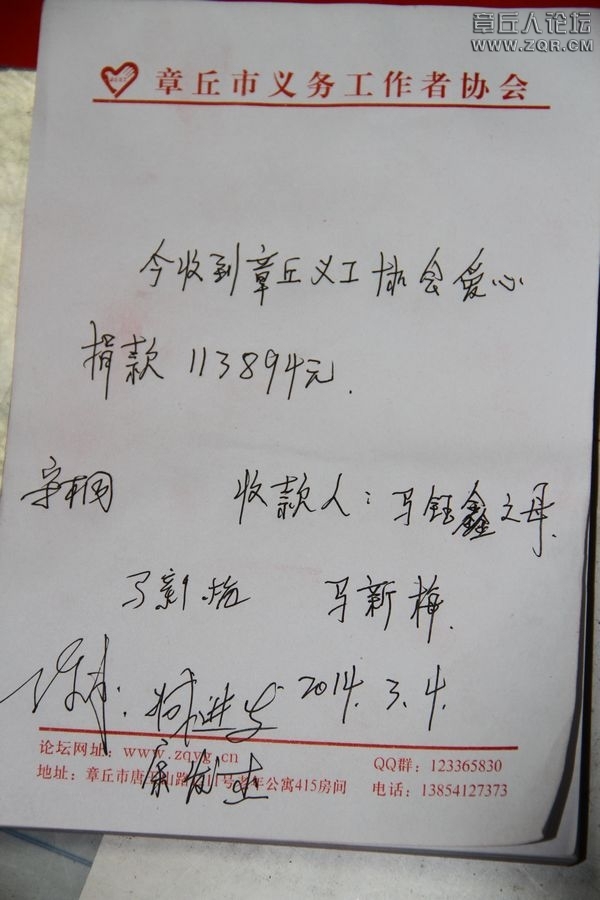 章丘人论坛
WWW.ZQR.CM
章丘市义务工作者协会
今收到章丘义工协会爱心
捐款 113894元.
收款人:马钰鑫父母.
马新梅.
2014.3.4.
论坛网址:www.zqyg.cn
QQ群:123365830
地址:章丘市唐 山路 11号青年公寓415房间
电话:13854127373